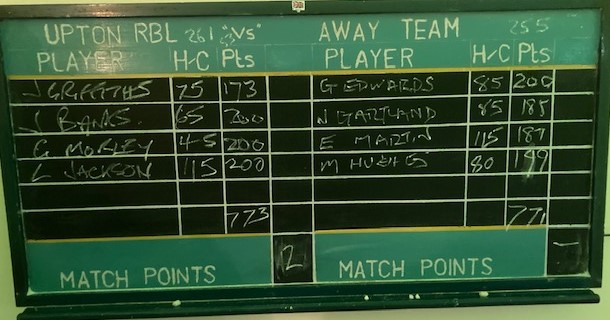 UPTON RBL 261 "Vs" AWAY TEAM 255
PLAYER H/C Pts PLAYER H/C Pts
J GRIFFITHS 75 173 G EDWARDS 85 200
J BANKS. 65 200 N GARTLAND 85 185
G MORLEY 45 200 E MARTIN 115 187
L JACKSON 115 200 M HUGHES 80 199
773 771
MATCH POINTS 12 MATCH POINTS -